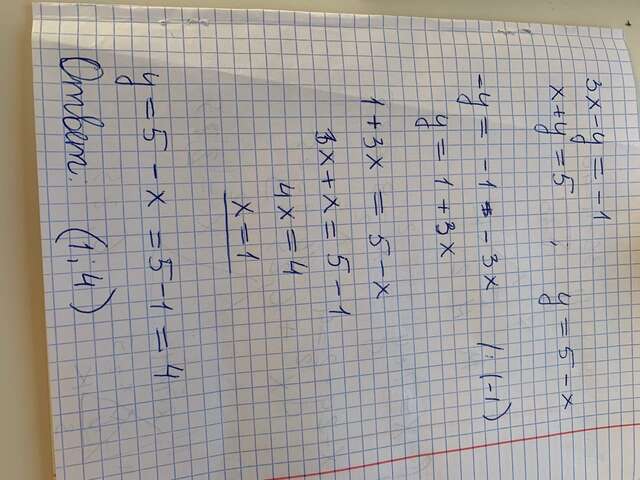 3x-y=-1
x+y=5 ; y=5-x
-y=-1-3x /:(-1)
y=1+3x
1+3x=5-x
3x+x=5-1
4x=4
x=1
y=5-x=5-1=4
Ответ: (1;4)